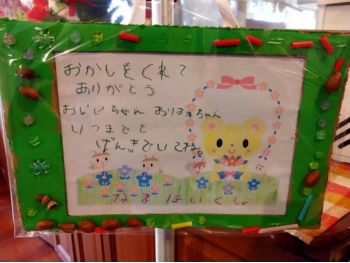 おかしをくれて
ありがとう
おじいちゃん おばあちゃん
いつまでも
げんきでいてね
なまほいくしつ